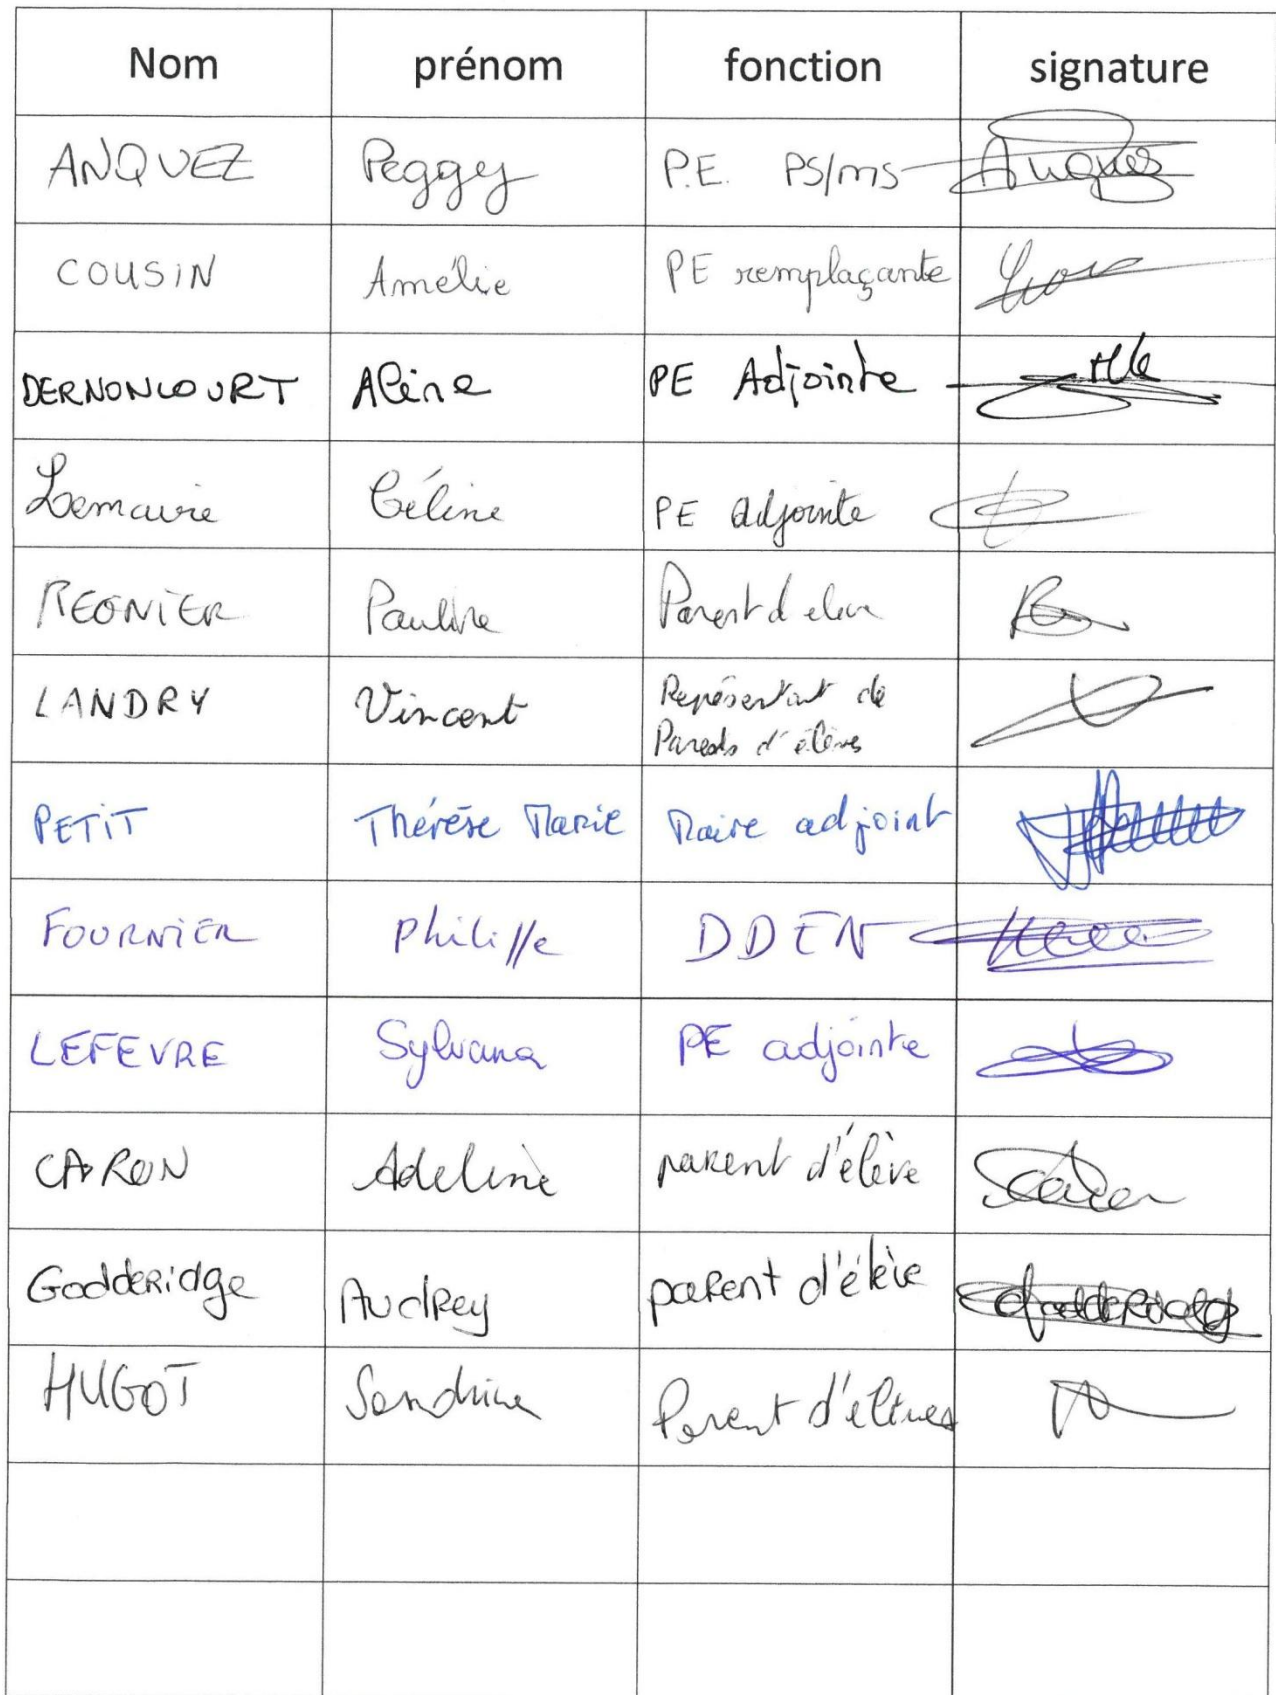 Nom prénom fonction signature
ANQUEZ Peggy P.E. PS/MS Anquez
COUSIN Amélie PE remplaçante
DERNONCOURT Aline PE Adjointe
Lemaire Céline PE adjointe
REGNIER Pauline Parent d'eleve
LANDRY Vincent Représentant de
Parents d'élèves
PETIT Thérèse Marie Maire adjoint
FOURNIER Philippe DDEN
LEFEVRE Sylvana PE adjointe
CARON Adeline parent d'élève
Godderidge Audrey parent d'élève Godderidge
HUGOT Sandrine Parent d'élèves